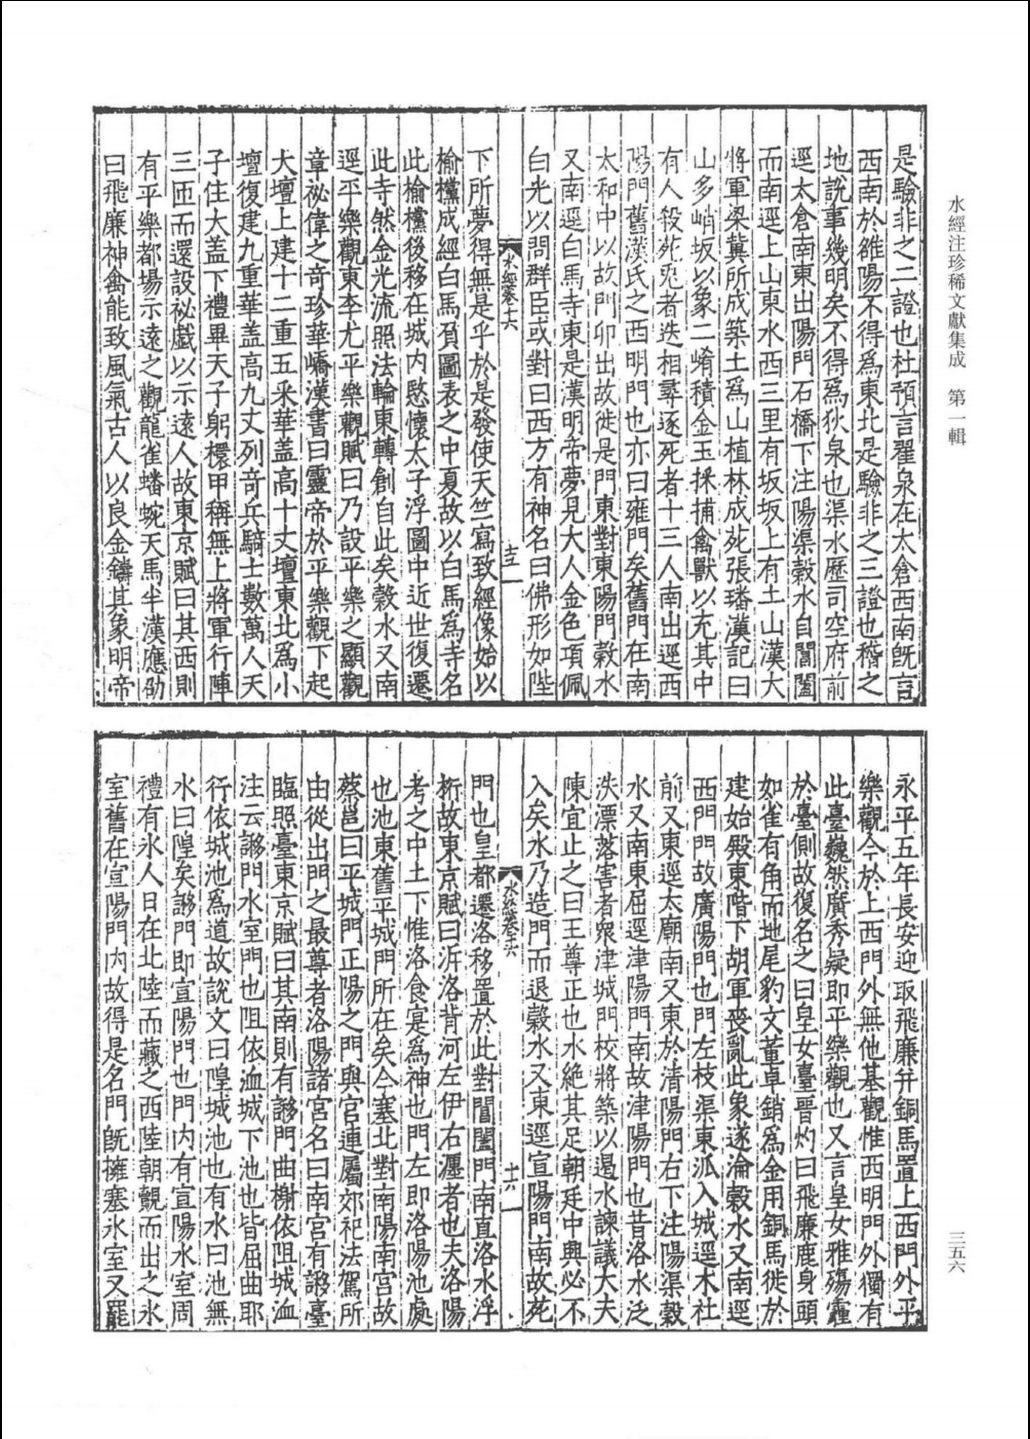 水經注珍稀文獻集成　第一輯
是驗非之二證也杜預言翟泉在太倉西南旣言
西南於雒陽不得爲東北是驗非之三證也稽之
地說事幾明矣不得爲狄泉也渠水歷司空府前
逕太倉南東出陽門石橋下注陽渠穀水自閶闔
而南逕上山東水西三里有坂坂上有土山漢大
將軍梁冀所成築土爲山植林成苑張璠漢記曰
山多峭坂以象二崤積金玉採捕禽獸以充其中
有人殺苑兎者迭相尋逐死者十三人南出逕西
陽門舊漢氏之西明門也亦曰雍門矣舊門在南
太和中以故門卯出故徙是門東對東陽門穀水
又南逕白馬寺東是漢明帝夢見大人金色項佩
白光以問群臣或對曰西方有神名曰佛形如陛
水經卷十六
十五
下所夢得無是乎於是發使天竺寫致經像始以
榆欓成經白馬負圖表之中夏故以白馬爲寺名
此榆欓後移在城內愍懷太子浮圖中近世復遷
此寺然金光流照法輪東轉創自此矣穀水又南
逕平樂觀東李尤平樂觀賦曰乃設平樂之顯觀
章祕偉之奇珍華嶠漢書曰靈帝於平樂觀下起
大壇上建十二重五采華盖高十丈壇東北爲小
壇復建九重華盖高九丈列竒兵騎士數萬人天
子住大盖下禮畢天子躬擐甲稱無上將軍行陣
三匝而還設祕戲以示遠人故東京賦曰其西則
有平樂都場示遠之觀龍雀蟠蜿天馬半漢應劭
曰飛廉神禽能致風氣古人以良金鑄其象明帝
永平五年長安迎取飛廉幷銅馬置上西門外平
樂觀今於上西門外無他基觀惟西明門外獨有
此臺巍然廣秀疑即平樂觀也又言皇女雅殤霾
於臺側故復名之曰皇女臺晉灼曰飛廉鹿身頭
如雀有角而地尾豹文董卓銷爲金用銅馬徙於
建始殿東階下胡軍喪亂此象遂淪穀水又南逕
西門門故廣陽門也門左枝渠東派入城逕木社
前又東逕太廟南又東於清陽門右下注陽渠穀
水又南東屈逕津陽門南故津陽門也昔洛水泛
泆漂落害者衆津城門校將築以遏水諫議大夫
陳宜止之曰王尊正也水絶其足朝廷中興必不
入矣水乃造門而退穀水又東逕宣陽門南故苑
水經卷十六
十六
門也皇都遷洛移置於此對閶闔門南直洛水浮
桁故東京賦曰泝洛背河左伊右瀍者也夫洛陽
考之中土下惟洛食寔爲神也門左即洛陽池處
也池東舊平城門所在矣今塞北對南陽南宫故
蔡邕曰平城門正陽之門與宫連屬郊祀法駕所
由從出門之最尊者洛陽諸宮名曰南宮有謻臺
臨照臺東京賦曰其南則有謻門曲榭依阻城洫
注云謻門水室門也阻依洫城下池也皆屈曲耶
行依城池爲道故說文曰隍城池也有水曰池無
水曰隍矣謻門即宣陽門也門內有宣陽水室周
禮有氷人日在北陸而藏之西陸朝覿而出之氷
室舊在宣陽門内故得是名門旣擁塞氷室又罷
三五六